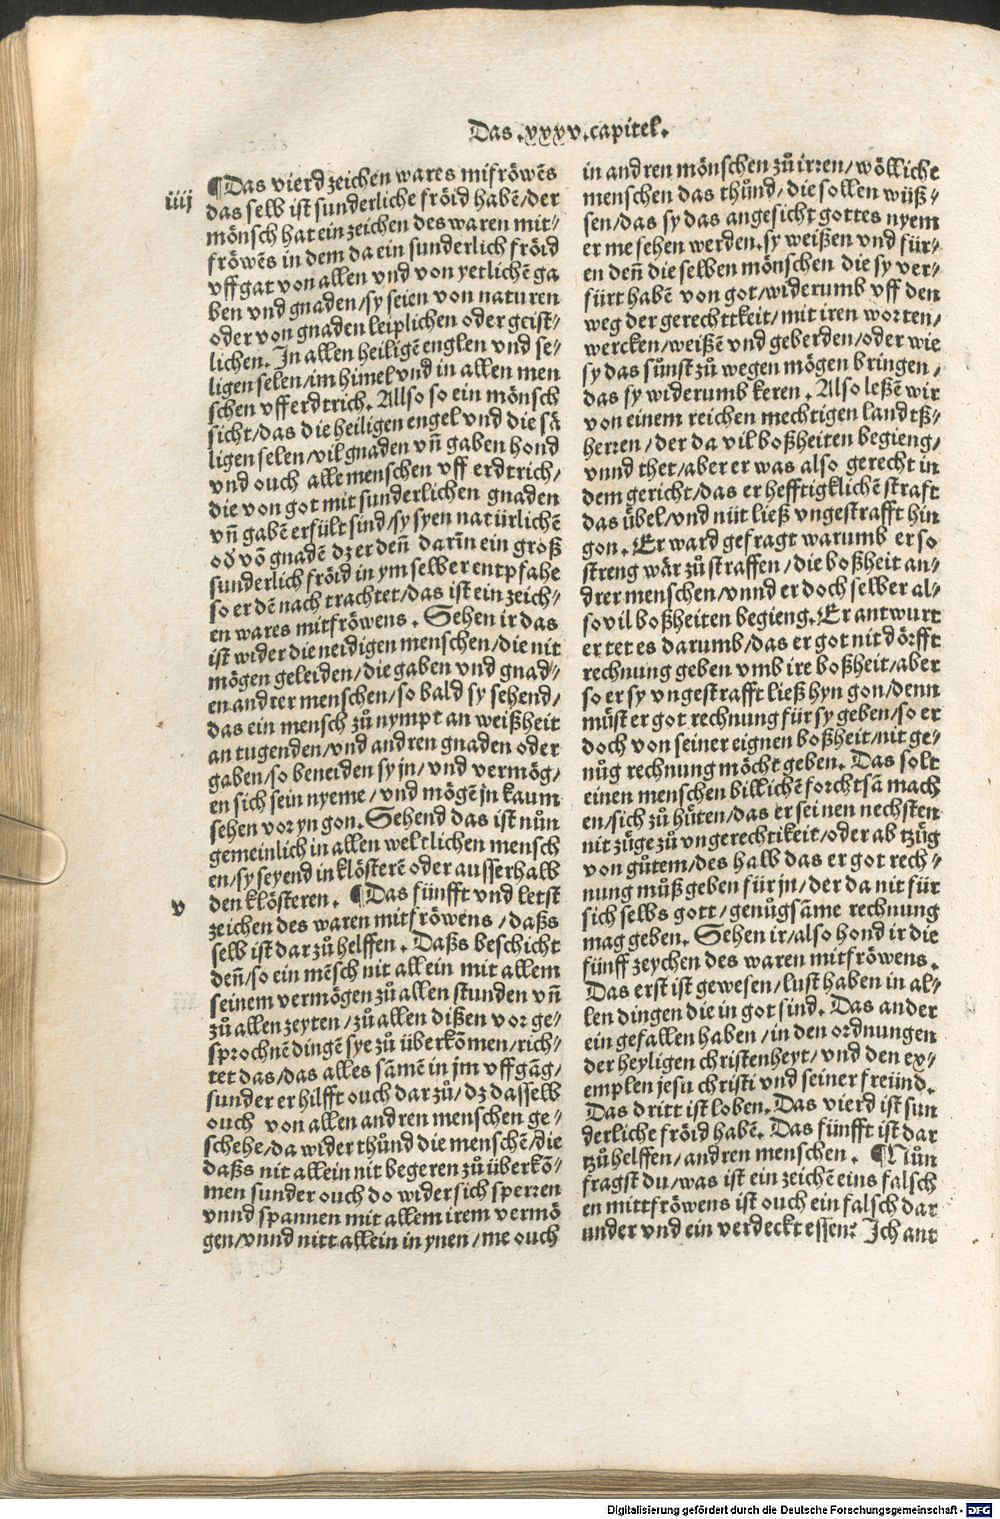 Das .xxxv. capitel.
iiij
¶Das vierd zeichen wares mifröwẽs
das selb ist sunderliche fröid habẽ/der
mönsch hat ein zeichen des waren mit⸗
fröwẽs in dem da ein sunderlich fröid
vff gat von allen vnd von yetlichẽ ga
ben vnd gnaden/sy seien von naturen
oder von gnaden leiplichen oder geist⸗
lichen. In allen heiligẽ englen vnd se⸗
ligen selen/im himel vnd in allen men
schen vff erdtrich. Allso so ein mönsch
sicht/das die heiligen engel vnd die sä
ligen selen/vil gnaden vñ gaben hond
vnd ouch alle menschen vff erdtrich/
die von got mit sunderlichen gnaden
vñ gabẽ erfült sind/sy syen natürlichẽ
od̃ võ gnadẽ dz er deñ darĩn ein groß
sunderlich fröid in ym selber entpfahe
so er dẽ nach trachtet/das ist ein zeich⸗
en wares mitfröwens. Sehen ir das
ist wider die neidigen menschen/die nit
mögen geleiden/die gaben vnd gnad⸗
en andrer menschen/so bald sy sehend/
das ein mensch zů nympt an weißheit
an tugenden/vnd andren gnaden oder
gaben/so beneiden sy jn/vnd vermög⸗
en sich sein nyeme/vnd mögẽ jn kaum
sehen vor yn gon. Sehend das ist nůn
gemeinlich in allen weltlichen mensch
en/sy seyend in klösterẽ oder ausserhalb
den klösteren. ¶Das fünfft vnd letst
v
zeichen des waren mitfröwens/daßs
selb ist dar zů helffen. Daßs beschicht
deñ/so ein mẽsch nit allein mit allem
seinem vermögen zů allen stunden vñ
zů allen zeyten/zů allen dißen vor ge⸗
sprochnẽ dingẽ sye zů überkõmen/rich⸗
tet das/das alles sãmẽ in jm vffgãg/
sunder er hilfft ouch dar zů/dz dasselb
ouch von allen andren menschen ge⸗
schehe/da wider thůnd die menschẽ/die
daßs nit allein nit begeren zů überkõ⸗
men sunder ouch do wider sich sperren
vnnd spannen mit allem irem vermö
gen/vnnd nitt allein in ynen/me ouch
in andren mönschen zů irren/wölliche
menschen das thůnd/die sollen wüß⸗
sen/das sy das angesicht gottes nyem
er me sehen werden. sy weißen vnd für⸗
en deñ die selben mönschen die sy ver⸗
fürt habẽ von got/widerumb vff den
weg der gerechttkeit/mit iren worten/
wercken/weißẽ vnd geberden/oder wie
sy das sůnst zů wegen mögen bringen/
das sy widerumb keren. Also leßẽ wir
von einem reichen mechtigen landtß⸗
herren/der da vil boßheiten begieng/
vnnd thet/aber er was also gerecht in
dem gericht/das er hefftigklichẽ straft
das übel/vnd nüt ließ vngestrafft hin
gon. Er ward gefragt warumb er so
streng wär zů straffen/die boßheit an⸗
drer menschen/vnnd er doch selber al⸗
so vil boßheiten begieng. Er antwurt
er tet es darumb/das er got nit dörfft
rechnung geben vmb ire boßheit/aber
so er sy vngestrafft ließ hyn gon/denn
müst er got rechnung für sy geben/so er
doch von seiner eignen boßheit/nit ge⸗
nůg rechnung möcht geben. Das solt
einen menschen billichẽ forchtsã mach
en/sich zů hüten/das er seinen nechsten
nit züge zů vngerechtikeit/oder ab tzüg
von gůtem/des halb das er got rech⸗
nung můß geben für jn/der da nit für
sich selbs gott/genůgsãme rechnung
mag geben. Sehen ir/also hond ir die
fünff zeychen des waren mitfröwens.
Das erst ist gewesen/lust haben in al⸗
len dingen die in got sind. Das ander
ein gefallen haben/in den ordnungen
der heyligen christenheyt/vnd den ex⸗
emplen jesu christi vnd seiner freünd.
Das dritt ist loben. Das vierd ist sun
derliche fröid habẽ. Das fünfft ist dar
tzů helffen/andren menschen. ¶Nůn
fragst du/was ist ein zeichẽ eins falsch
en mittfröwens ist ouch ein falsch dar
under vnd ein verdeckt essen? Ich ant
Digitalisierung gefördert durch die Deutsche Forschungsgemeinschaft - DFG